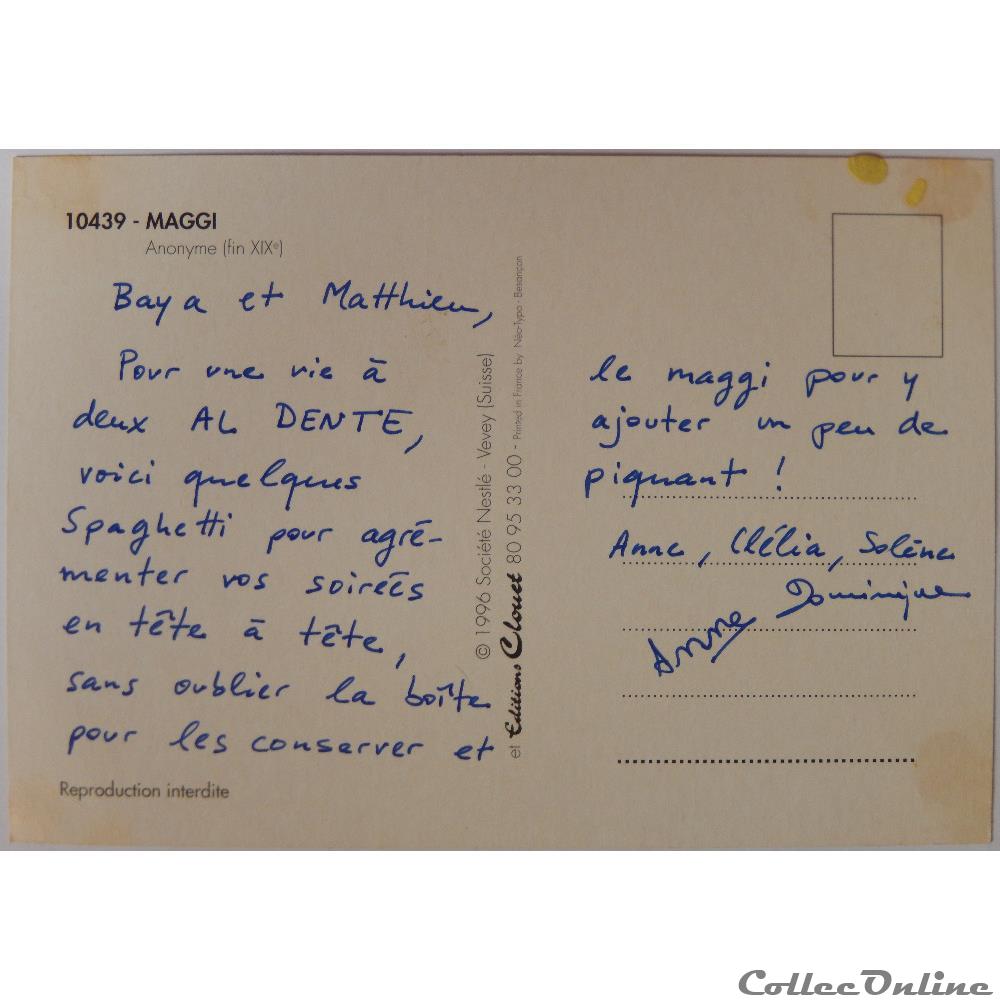 10439 - MAGGI
Anonyme (fin XIXe)
Baya et Matthieu,
Pour une vie à
deux AL DENTE,
voici quelques
Spaghetti pour agré-
menter vos soirées
en tête à tête,
sans oublier la boîte
pour les conserver et
Reproduction interdite
© 1996 Société Nestlé - Vevey (Suisse)
et Editions Clouet 80 95 33 00 - Printed in France by Néo-Typo - Besançon
le maggi pour y
ajouter un peu de
piquant !
Anne, Clélia, Solène
Dominique
Anne
CollecOnline